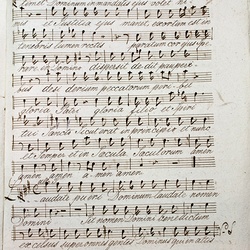 timet Dominum in mandatis ejus volet ni
mis et Justitia ejus manet exortum est in
tenebris lumen rectis paratum cor ejus spe
rare in Domino dispersit dedit pauperi
bus desiderium peccatorum peribit
gloria Patri gloria filio et Spiri
tui Sancto Sicut erat in principio et nunc
et Semper et in Saecula Saeculorum amen
amen amen a men amen
Laudate pueri Dominum laudate nomen
Domini Sit nomen Domini benedictum
excelsus super omnes gentes Dominus qui in altis